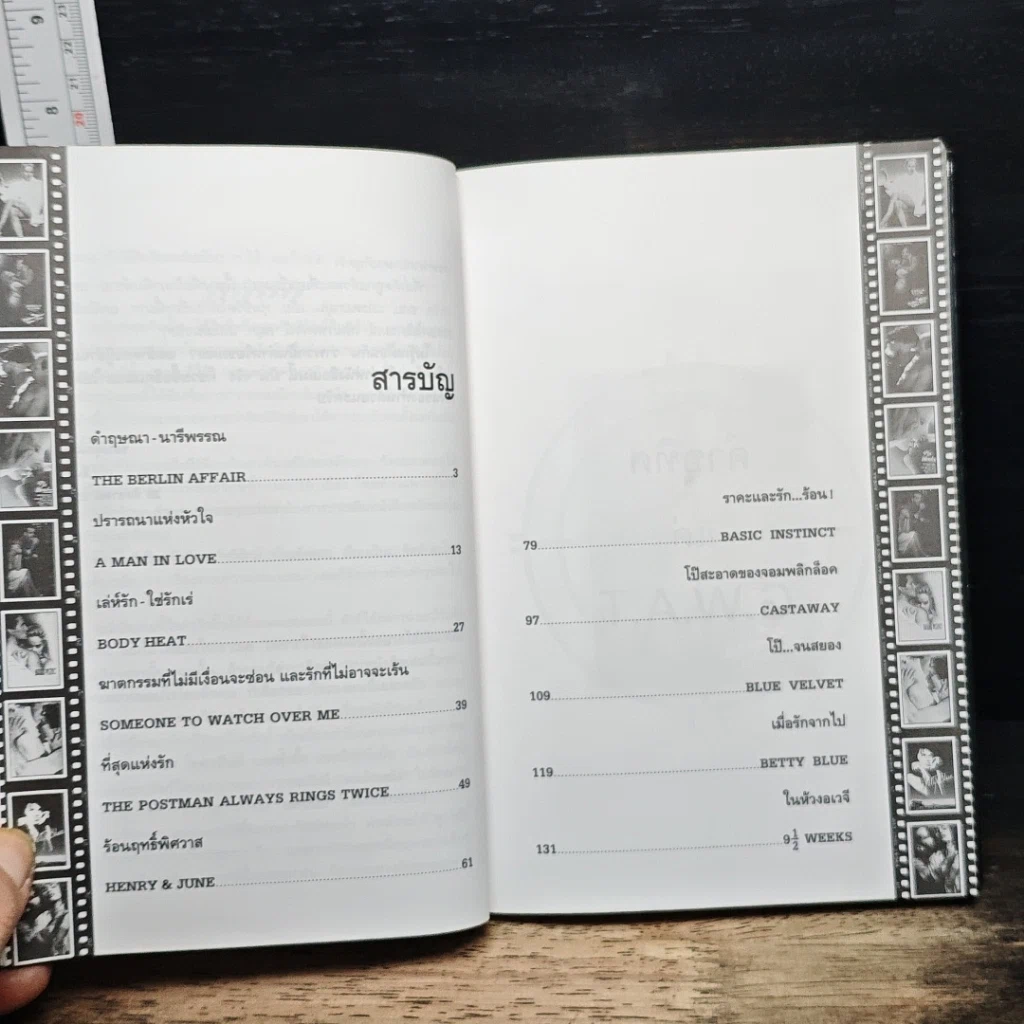 สารบัญ
ดำฤษณา - นารีพรรณ
THE BERLIN AFFAIR 3
ปรารถนาแห่งหัวใจ
A MAN IN LOVE 13
เล่ห์รัก - ใช่รักเร่
BODY HEAT 27
ฆาตกรรมที่ไม่มีเงื่อนจะซ่อน และรักที่ไม่อาจจะเร้น
SOMEONE TO WATCH OVER ME 39
ที่สุดแห่งรัก
THE POSTMAN ALWAYS RINGS TWICE 49
ร้อนฤทธิ์พิศวาส
HENRY & JUNE 61
ราคะและรัก...ร้อน!
79 BASIC INSTINCT
โป๊สะอาดของจอมพลิกล็อค
97 CASTAWAY
โป๊...จนสยอง
109 BLUE VELVET
เมื่อรักจากไป
119 BETTY BLUE
ในห้วงอเวจี
131 9½ WEEKS
9
8
23
22
21
20